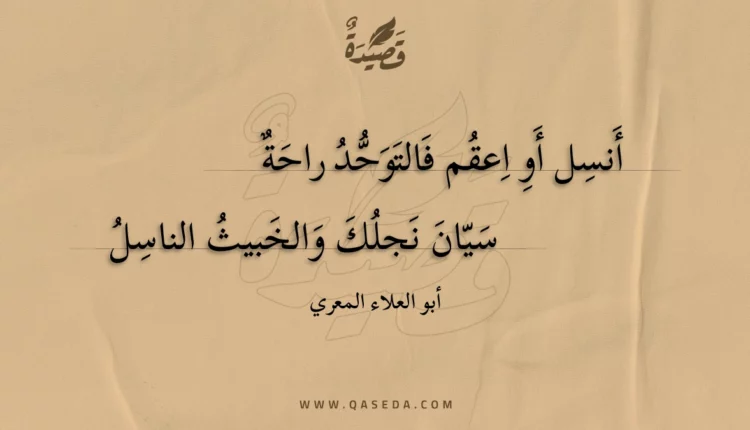 قَصِيدَةٌ
أَنسِل أَوِ اِعقُم فَالتَوَحُّدُ راحَةٌ
سَيّانَ نَجلُكَ وَالخَبيثُ الناسِلُ
أبو العلاء المعري
WWW.QASEDA.COM